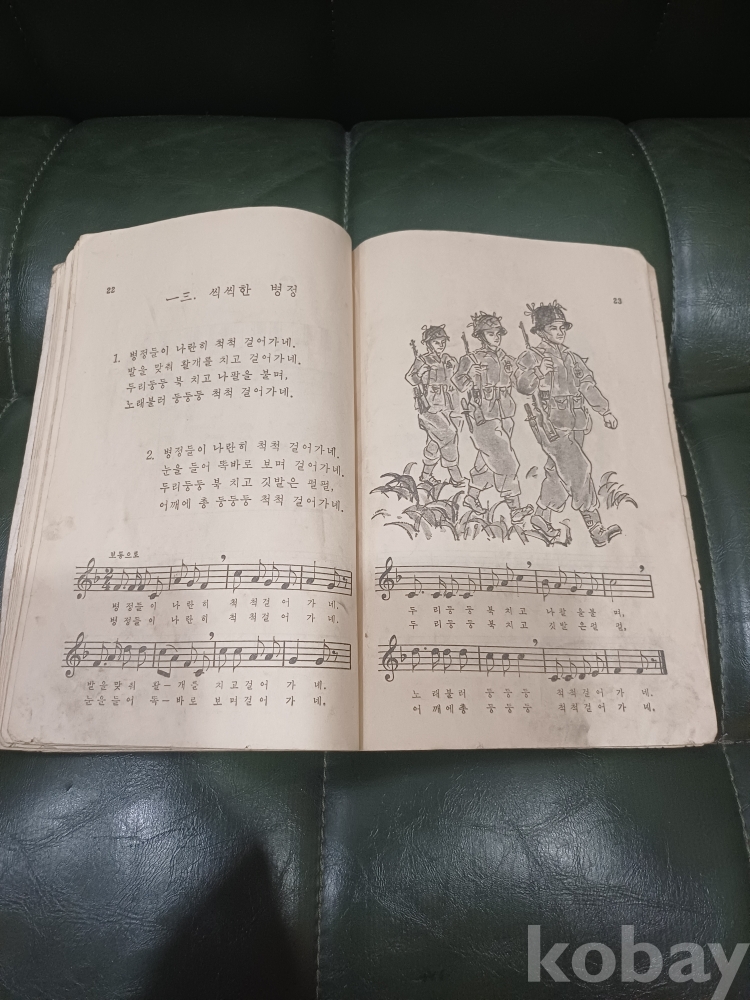 22
一三. 씩씩한 병정
1. 병정들이 나란히 척척 걸어가네.
발을 맞춰 활개를 치고 걸어가네.
두리둥둥 북 치고 나팔을 불며,
노래불러 둥둥둥 척척 걸어가네.
2. 병정들이 나란히 척척 걸어가네.
눈을 들어 똑바로 보며 걸어가네.
두리둥둥 북 치고 깃발은 펄펄,
어깨에 총 둥둥둥 척척 걸어가네.
보통으로
병 정들이 나란히 척 척걸 어 가 네.
병 정들이 나란히 척 척걸 어 가 네.
발을맞춰 활–개를 치고걸어 가 네.
눈을들어 똑–바로 보며걸어 가 네.
23
두 리둥둥 북치고 나팔을불 며,
두 리둥둥 북치고 깃발은펄 펄,
노 래불러 둥둥둥 척척걸어가 네.
어 깨에총 둥둥둥 척척걸어가 네.
kobay